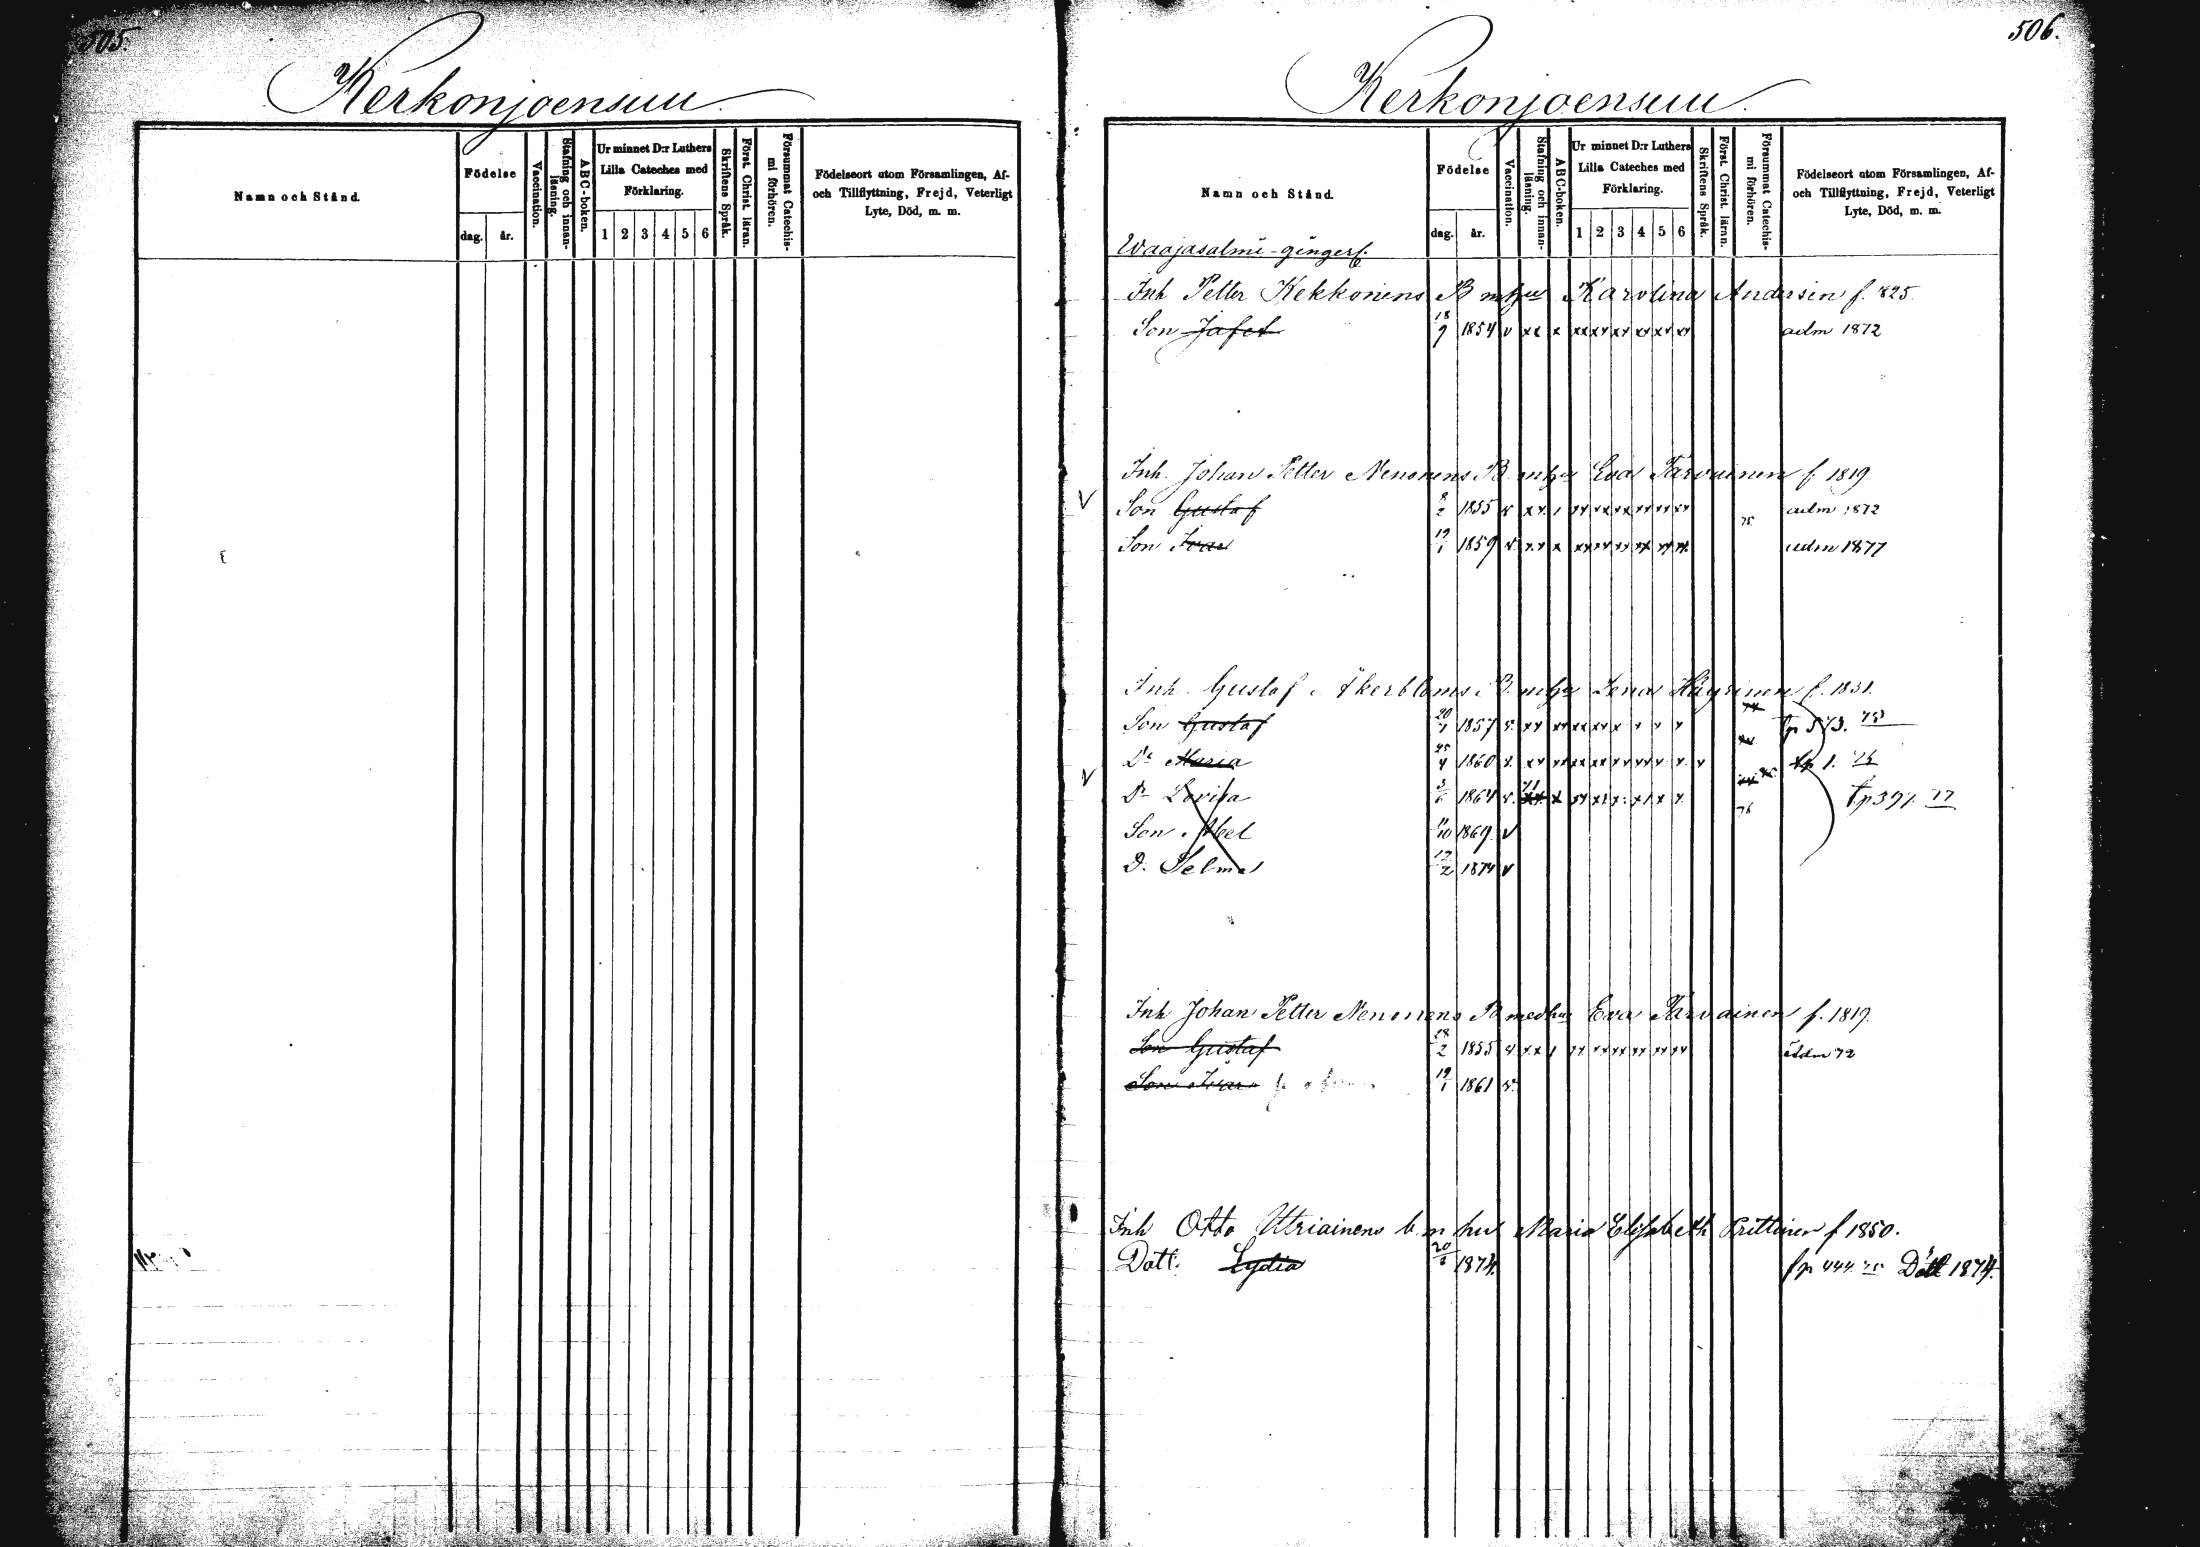 505.
Kerkonjoensuu
Namn och Stånd.
Födelse
dag.
år.
Vaccination.
Stafning och innan-
läsning.
ABC-boken.
Ur minnet D:r Luthers
Lilla Cateches med
Förklaring.
1 2 3 4 5 6
Skriftens Språk.
Först. Christ. läran.
Försummat Catechis-
mi förhören.
Födelseort utom Församlingen, Af-
och Tillflyttning, Frejd, Veterligt
Lyte, Död, m. m.
506.
Kerkonjoensuu.
Namn och Stånd.
Födelse
dag.
år.
Vaccination.
Stafning och innan-
läsning.
ABC-boken.
Ur minnet D:r Luthers
Lilla Cateches med
Förklaring.
1 2 3 4 5 6
Skriftens Språk.
Först. Christ. läran.
Försummat Catechis-
mi förhören.
Födelseort utom Församlingen, Af-
och Tillflyttning, Frejd, Veterligt
Lyte, Död, m. m.
Waajasalmi-gingerf.
Inh Petter Kekkonens B m hus Karolina Andersin f. 825
Son Jafet 18/9 1854 v xx x xx xx xx xx xx xx adm 1872
Inh. Johan Petter Nenonens B m hu Eva Tarvainen f 1819
V Son Gustaf 1855 v adm 1872
75
Son Ivar 19/1 1859 v. xx x adm 1877
Inh. Gustaf Åkerbloms B. m hu Lena Häyrinen f. 1831.
Son Gustaf 20/7 1857 v. fp 573. 78
V Dr Maria 25/4 1860 v. fp 1.
Dr Lovisa 3/6 1864 v. 76 fp 397. 77
Son Abel 11/10 1869. v
D. Selma 17/2 1874 v
Inh Johan Petter Nenonens B med hu Eva Tarvainen f. 1819.
Son Gustaf 28/2 1855 v. xx adm 72
Son Ivar 19/1 1861 v.
Inh Otto Utriainens b. m hus Maria Elisabeth Prittinen f 1850.
Dott. Lydia 20/6 1874. fp 444 75 Död 1874.